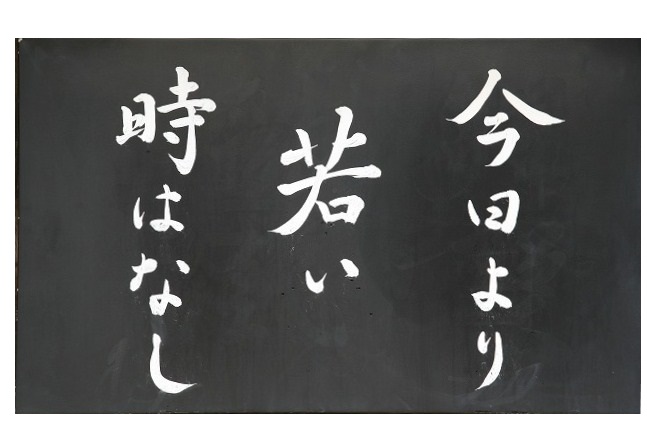 今日より
若い
時はなし